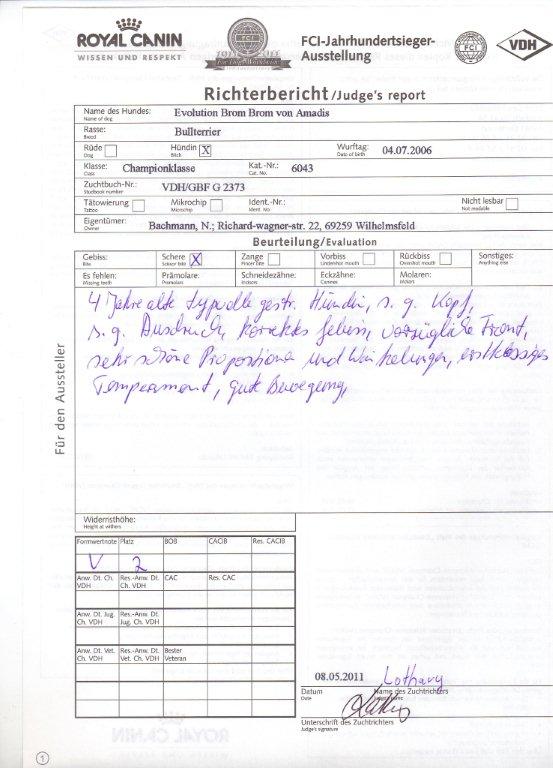 ROYAL CANIN
WISSEN UND RESPEKT
FCI
FCI-Jahrhundertsieger-
Ausstellung
FCI
VDH
Richterbericht/Judge's report
Name des Hundes: Evolution Brom Brom von Amadis
Name of dog
Rasse: Bullterrier
Breed
Rüde Hündin X Wurftag: 04.07.2006
Dog Bitch Date of birth
Klasse: Championklasse Kat.-Nr.: 6043
Class Cat. No.
Zuchtbuch-Nr.: VDH/GBF G 2373
Studbook number
Tätowierung Mikrochip Ident.-Nr.: Nicht lesbar
Tattoo Microchip Ident. No. Not readable
Eigentümer: Bachmann, N.; Richard-wagner-str. 22, 69259 Wilhelmsfeld
Owner
Beurteilung/Evaluation
Gebiss: Schere X Zange Vorbiss Rückbiss Sonstiges:
Bite Scissor bite Pincer bite Undershot mouth Overshot mouth Anything else
Es fehlen: Prämolare: Schneidezähne: Eckzähne: Molaren:
Missing teeth Premolars Incisors Canines Molars
4 Jahre alte typvolle gestr. Hündin, s. g. Kopf,
s. g. Ausdruck, korrektes Gebiss, vorzügliche Front,
sehr schöne Proportionen und Winkelungen, erstklassiges
Temperament, gute Bewegung,
Für den Aussteller
Widerristhöhe:
Height at withers
Formwertnote Platz BOB CACIB Res. CACIB
V 2
Anw. Dt. Ch. VDH Res.-Anw. Dt. Ch. VDH CAC Res. CAC
Anw. Dt. Jug. Ch. VDH Res.-Anw. Dt. Jug. Ch. VDH
Anw. Dt. Vet. Ch. VDH Res.-Anw. Dt. Vet. Ch. VDH Bester Veteran
08.05.2011 Lothary
Datum Name des Zuchtrichters
Date Judge's name
Unterschrift des Zuchtrichters
Judge's signature
1